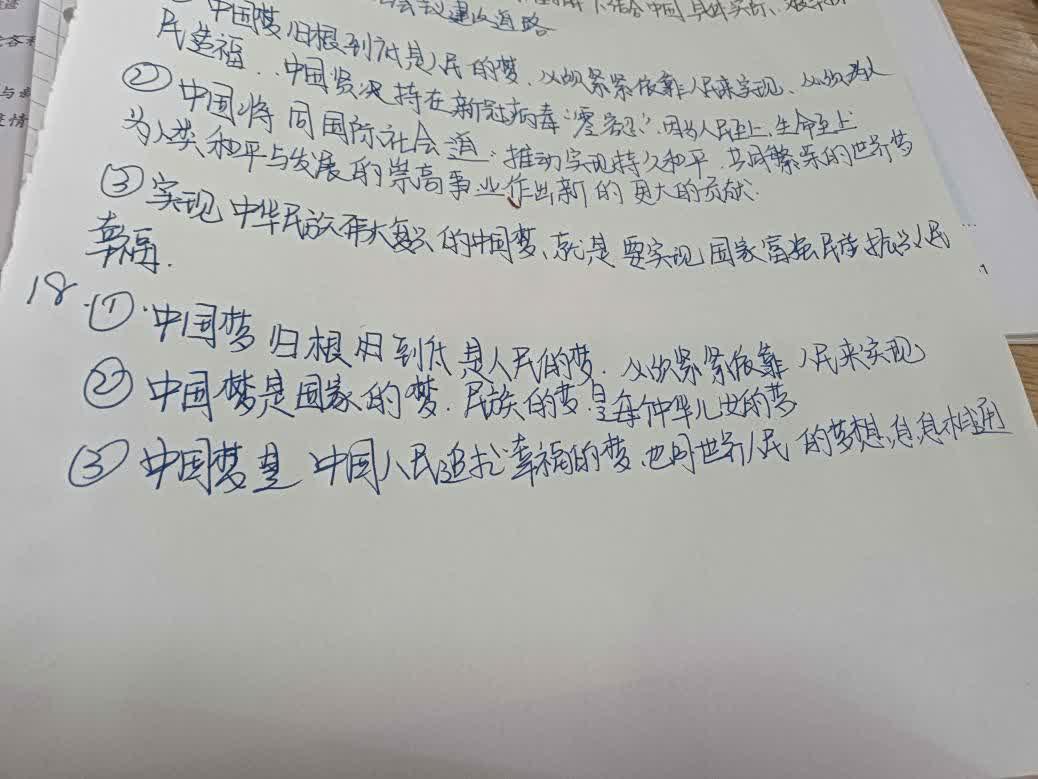 会议建设道路
中国梦归根到底是人民的梦.必须紧紧依靠人民来实现、必须为人
民造福..中国坚决持在新冠病毒"零容忍".因为人民至上,生命至上
②中国将同国际社会一道.推动实现持久和平.共同繁荣的世界梦
为人类和平与发展的崇高事业作出新的更大的贡献.
③实现中华民族伟大复兴的中国梦、就是要实现国家富强民族振兴人民
幸福.
18.①.中国梦归根归到底是人民的梦.必须紧紧依靠人民来实现
②中国梦是国家的梦.民族的梦.是每个中华儿女的梦
③中国梦是中国人民追求幸福的梦.也同世界人民的梦想息息相通